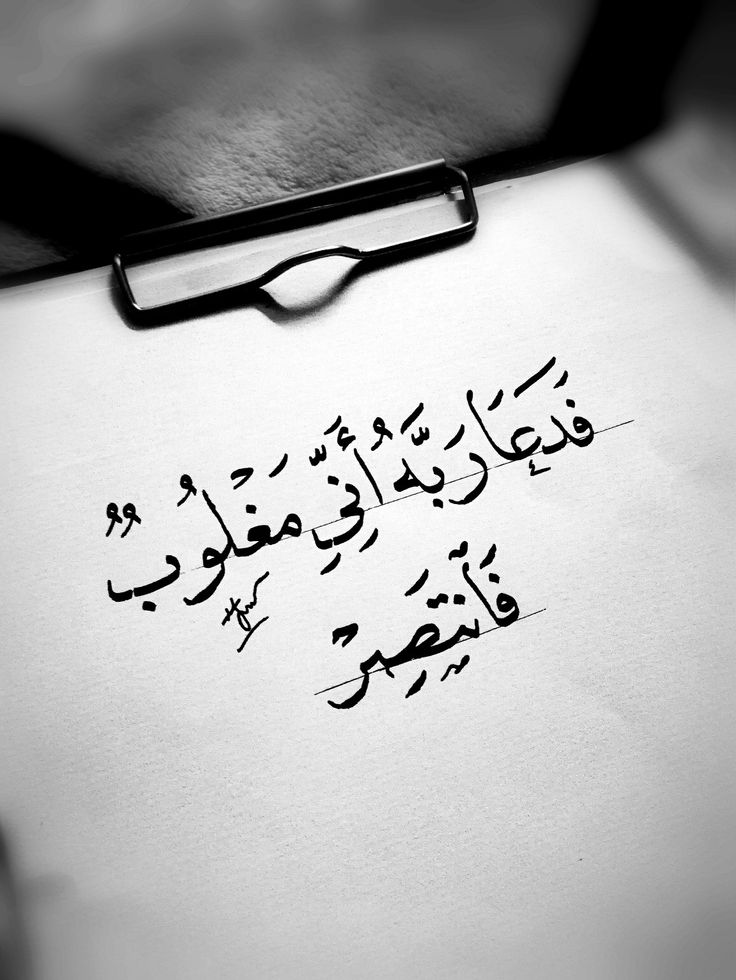 فَدَعَا رَبَّهُ أَنِّي مَغْلُوبٌ
فَانْتَصِرْ